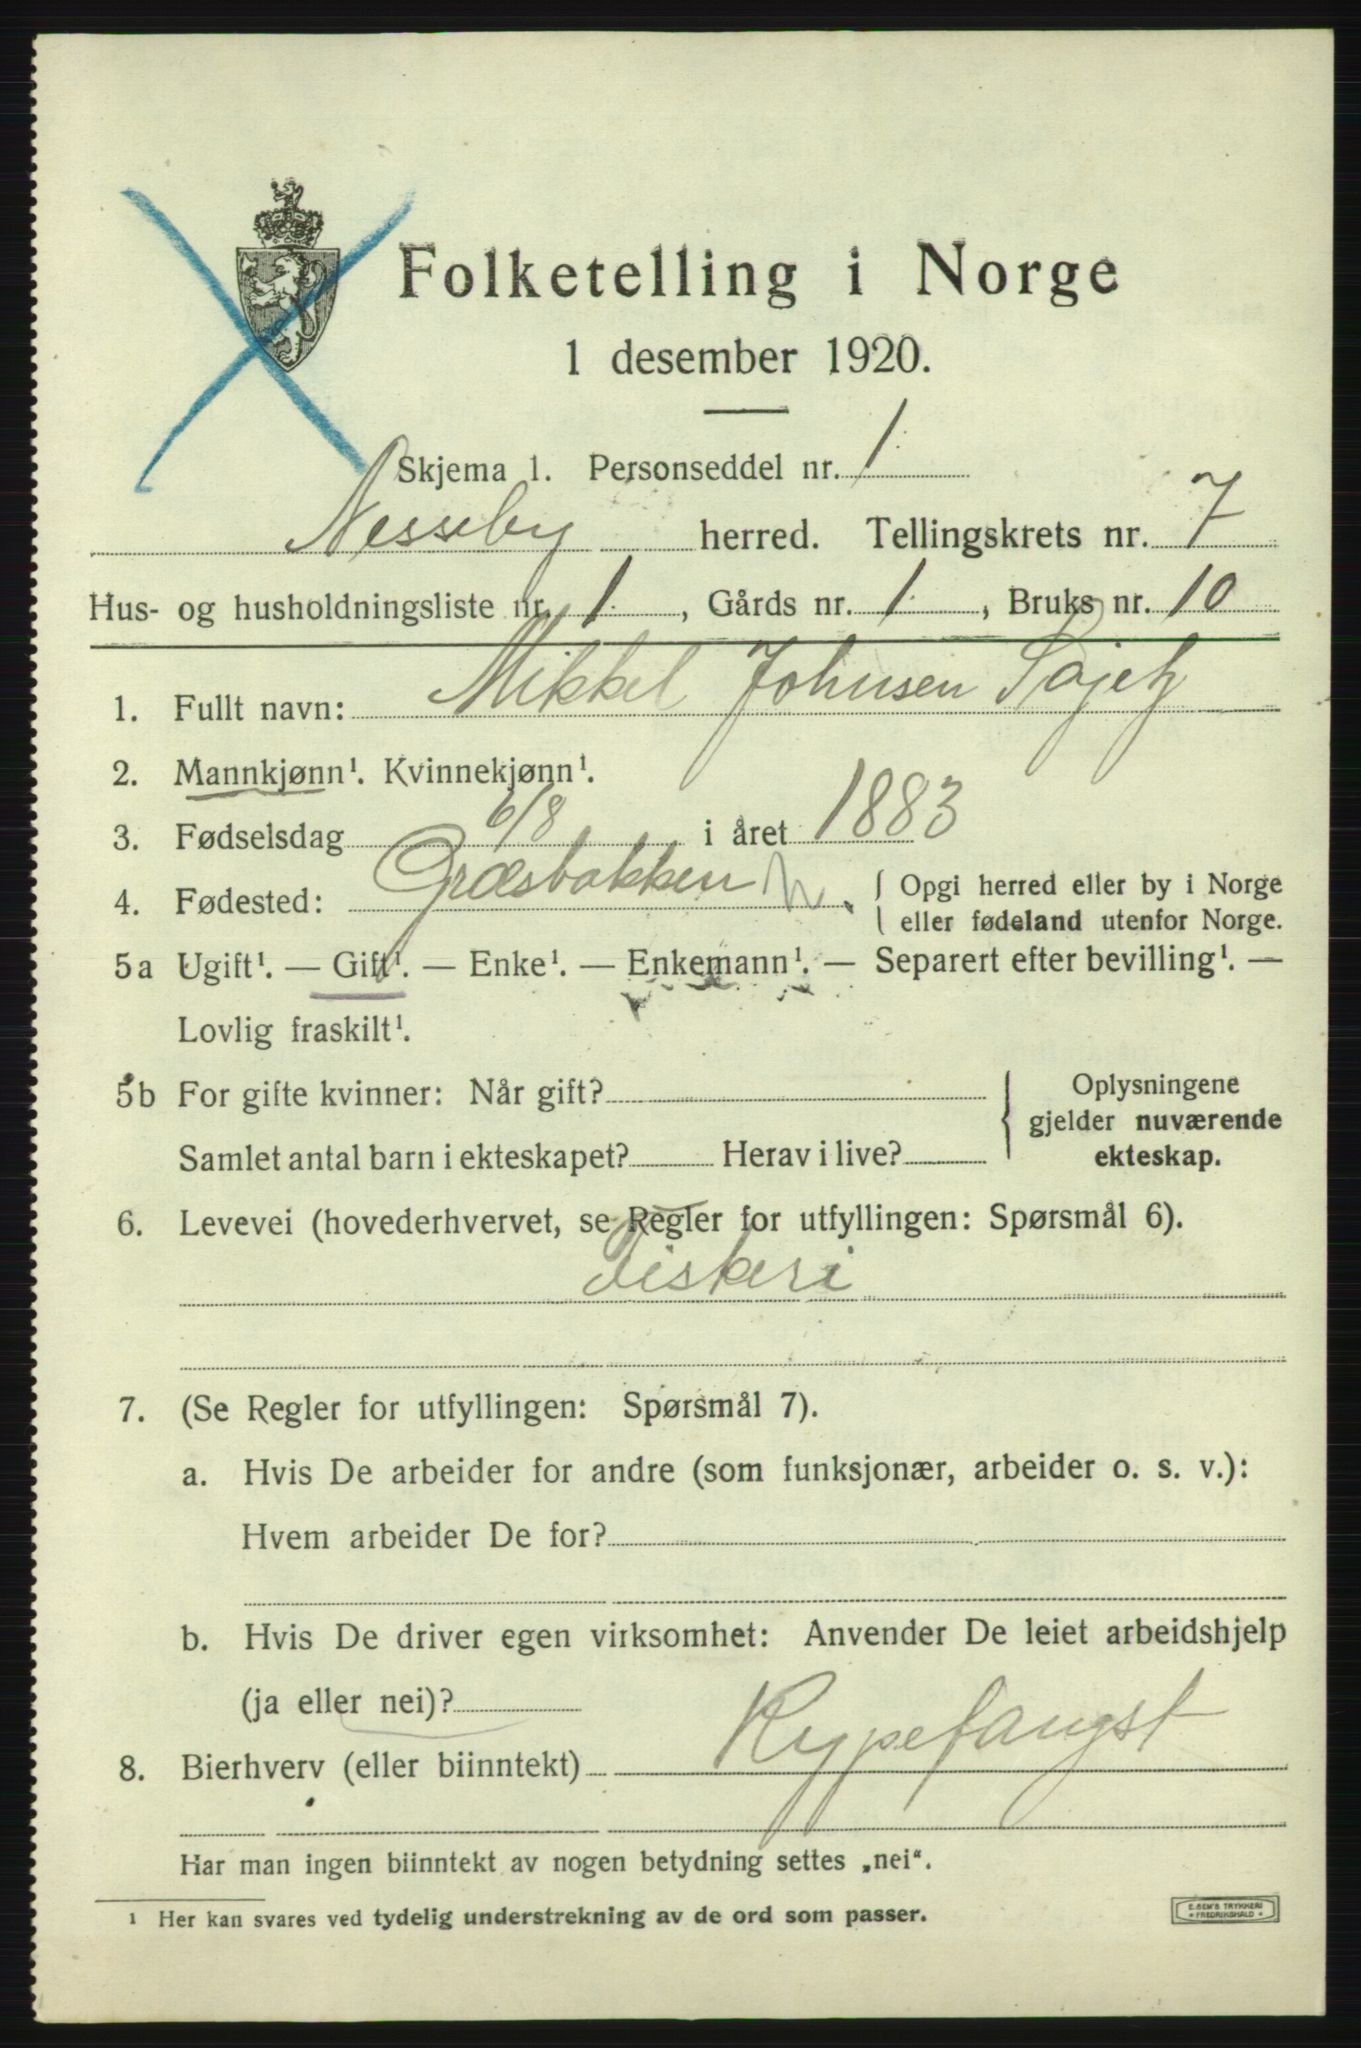 Folketelling i Norge
1 desember 1920.
Skjema 1. Personseddel nr. 1.
Nesseby herred. Tellingskrets nr. 7
Hus- og husholdningsliste nr. 1., Gårds nr. 1., Bruks nr. 10
1. Fullt navn: Mikkel Johnsen
2. Mannkjønn¹. Kvinnekjønn¹.
3. Fødselsdag 6/8 i året 1883
4. Fødested: Græsbakken { Opgi herred eller by i Norge
eller fødeland utenfor Norge.
5a Ugift¹. — Gift¹. — Enke¹. — Enkemann¹. — Separert efter bevilling¹. —
Lovlig fraskilt¹.
5b For gifte kvinner: Når gift?
Samlet antal barn i ekteskapet? Herav i live?
{ Oplysningene
gjelder nuværende
ekteskap.
6. Levevei (hovederhvervet, se Regler for utfyllingen: Spørsmål 6).
Fiskeri
7. (Se Regler for utfyllingen: Spørsmål 7).
a. Hvis De arbeider for andre (som funksjonær, arbeider o. s. v.):
Hvem arbeider De for?
b. Hvis De driver egen virksomhet: Anvender De leiet arbeidshjelp
(ja eller nei)?
8. Bierhverv (eller biinntekt) Rypefangst
Har man ingen biinntekt av nogen betydning settes „nei“.
¹ Her kan svares ved tydelig understrekning av de ord som passer.
E. SEM'S TRYKKERI
FREDRIKSHALD